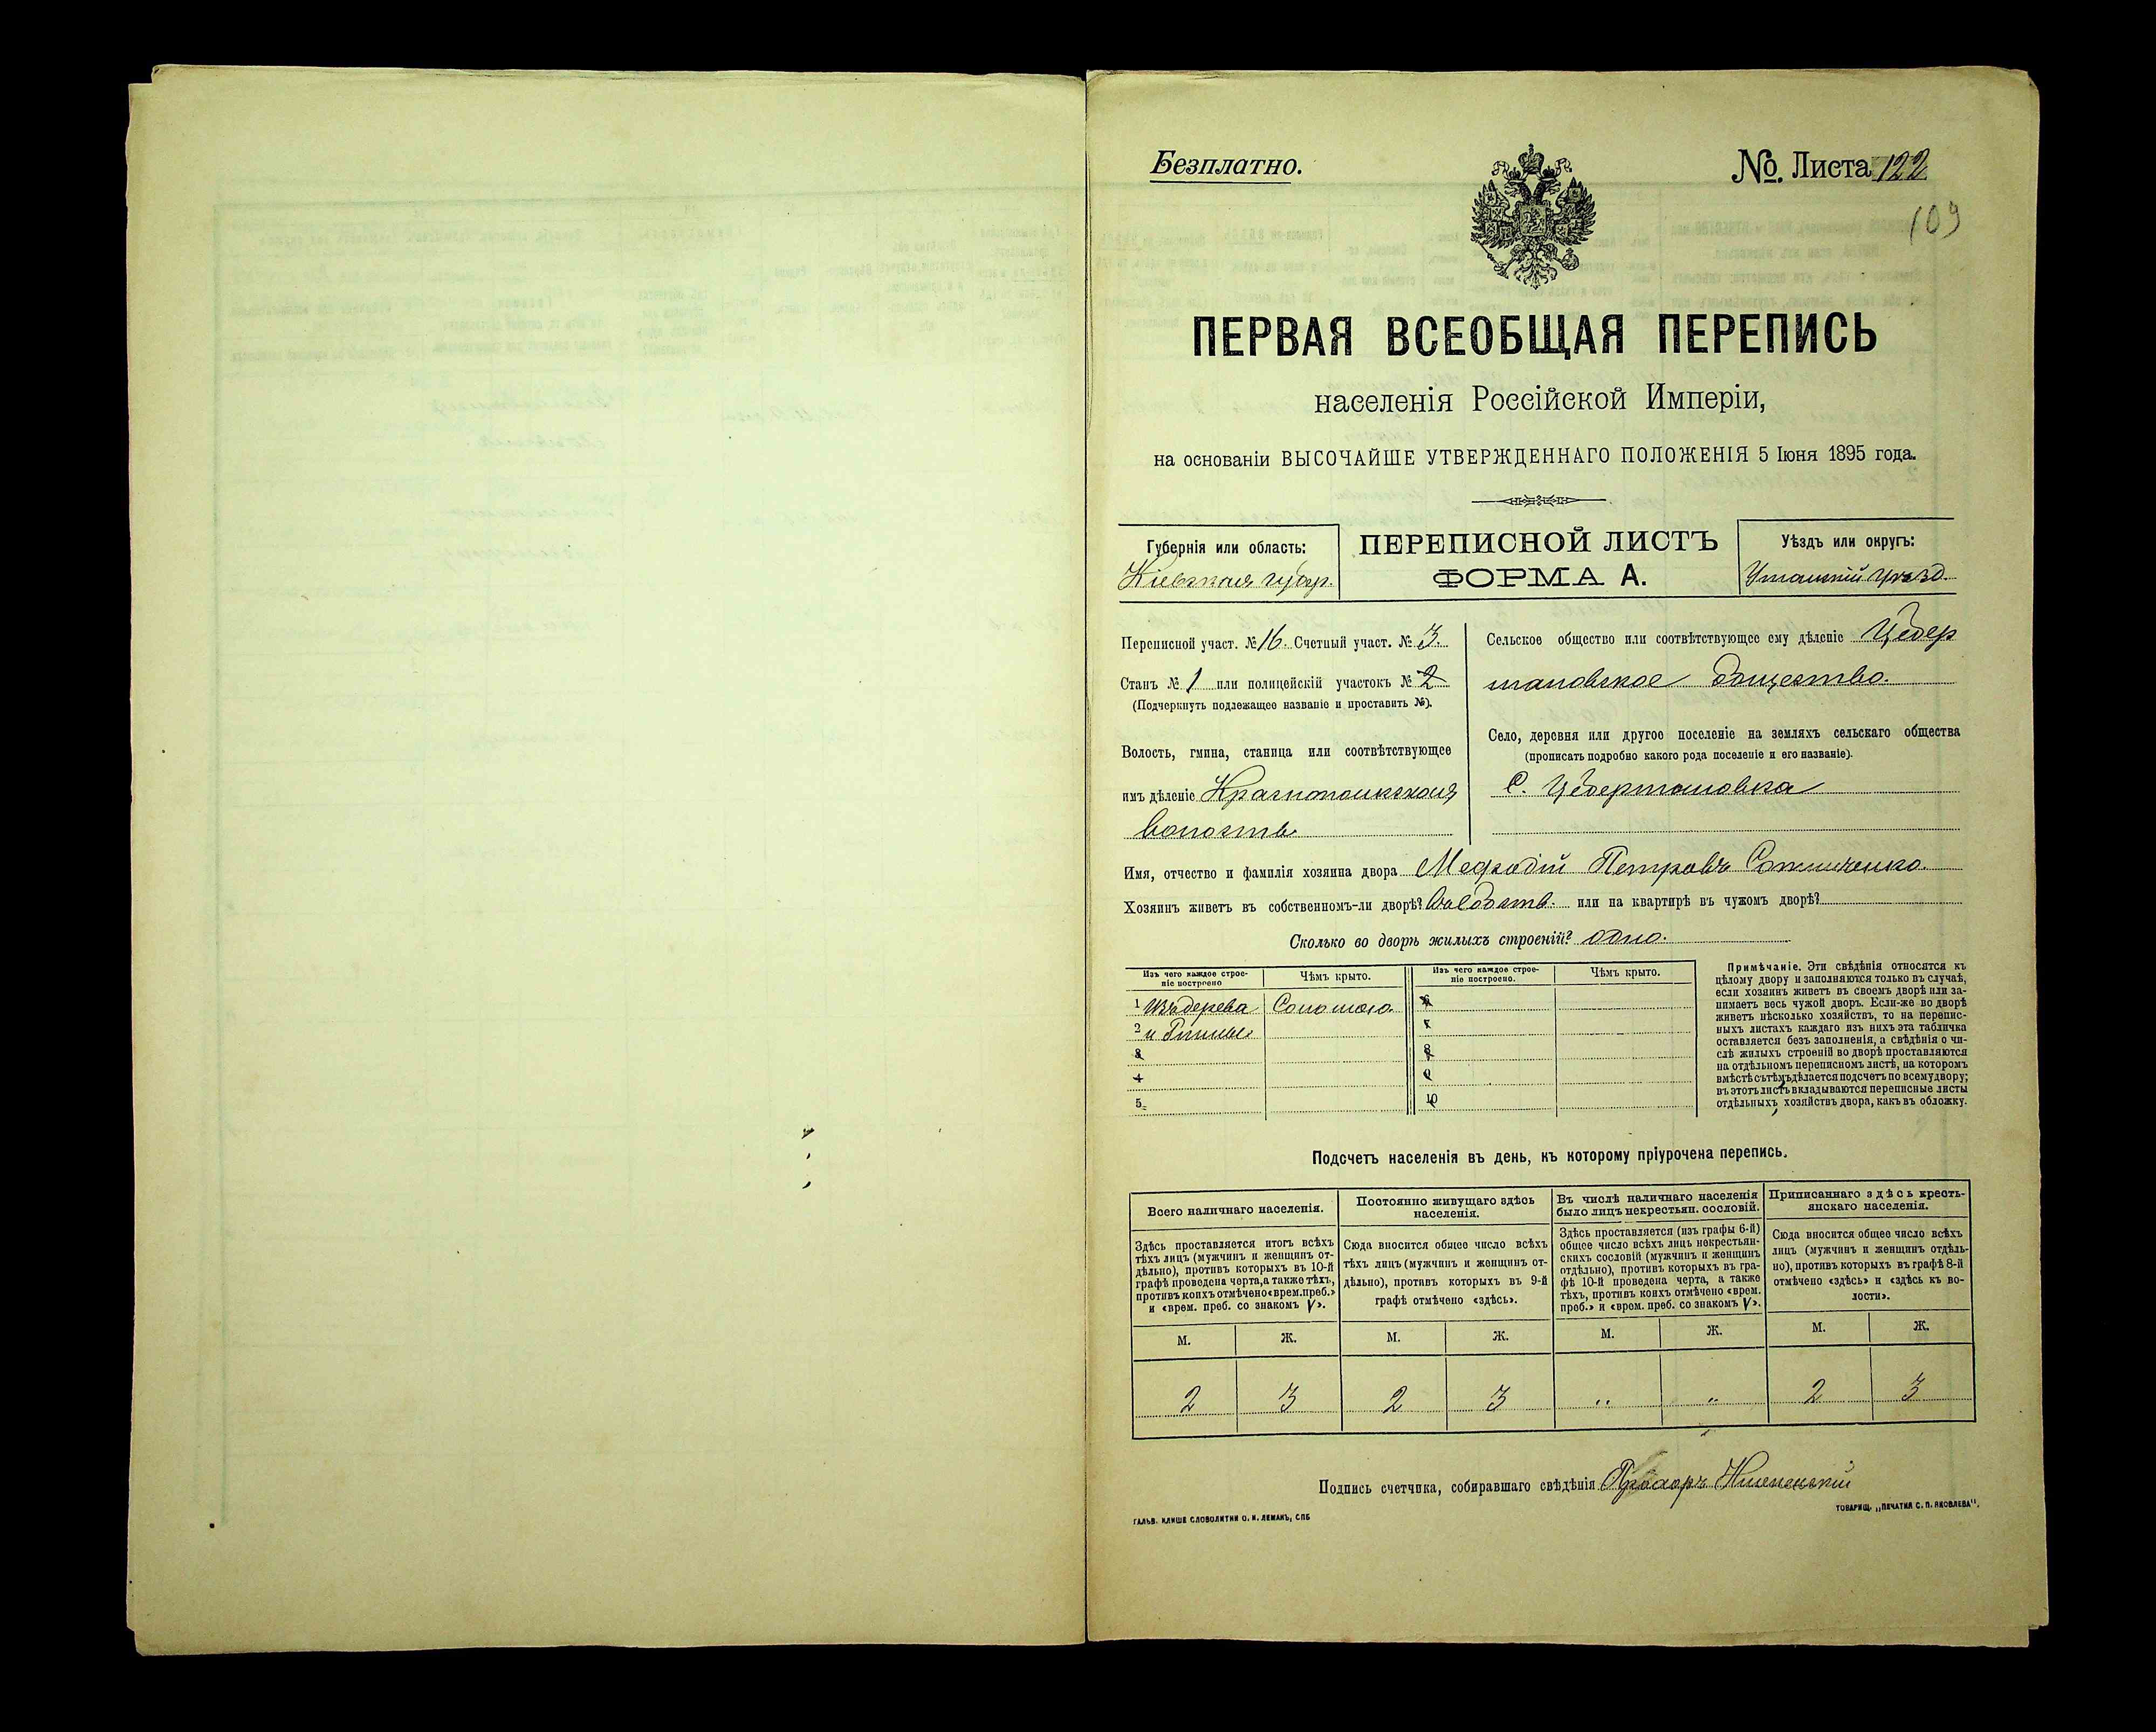 Безплатно.
No. Листа 122
109
ПЕРВАЯ ВСЕОБЩАЯ ПЕРЕПИСЬ
населенія Россійской Имперіи,
на основаніи ВЫСОЧАЙШЕ УТВЕРЖДЕННАГО ПОЛОЖЕНІЯ 5 Іюня 1895 года.
Губернія или область:
Кіевская губер.
ПЕРЕПИСНОЙ ЛИСТЪ
ФОРМА А.
Уѣздъ или округъ:
Уманскій уѣзд.
Переписной участ. № 16. Счетный участ. № 3.
Станъ № 1 или полицейскій участокъ № 2
(Подчеркнуть подлежащее названіе и проставить №).
Волость, гмина, станица или соотвѣтствующее
имъ дѣленіе
волость
Сельское общество или соотвѣтствующее ему дѣленіе Цебер
мановское общество.
Село, деревня или другое поселеніе на земляхъ сельскаго общества
(прописать подробно какого рода поселеніе и его названіе).
С. Цебермановка
Имя, отчество и фамилія хозяина двора Мефодій Петровъ
Хозяинъ живетъ въ собственномъ-ли дворѣ? или на квартирѣ въ чужомъ дворѣ?
Сколько во дворѣ жилыхъ строеній? одно.
Изъ чего каждое строе-
ніе построено
Чѣмъ крыто.
Изъ чего каждое строе-
ніе построено.
Чѣмъ крыто.
1 Изъ дерева Соломою. 6
2 и Глины 7
3 8
4 9
5 10
Примѣчаніе. Эти свѣдѣнія относятся къ
цѣлому двору и заполняются только въ случаѣ,
если хозяинъ живетъ въ своемъ дворѣ или за-
нимаетъ весь чужой дворъ. Если-же во дворѣ
живетъ нѣсколько хозяйствъ, то на перепис-
ныхъ листахъ каждаго изъ нихъ эта табличка
оставляется безъ заполненія, а свѣдѣнія о чи-
слѣ жилыхъ строеній во дворѣ проставляются
на отдѣльномъ переписномъ листѣ, на которомъ
вмѣстѣ съ тѣмъ дѣлается подсчетъ по всему двору;
въ этотъ листъ вкладываются переписные листы
отдѣльныхъ хозяйствъ двора, какъ въ обложку.
Подсчетъ населенія въ день, къ которому пріурочена перепись.
Всего наличнаго населенія.
Постоянно живущаго здѣсь
населенія.
Въ числѣ наличнаго населенія
было лицъ некрестьян. сословій.
Приписаннаго здѣсь кресть-
янскаго населенія.
Здѣсь проставляется итогъ всѣхъ
тѣхъ лицъ (мужчинъ и женщинъ от-
дѣльно), противъ которыхъ въ 10-й
графѣ проведена черта, а также тѣхъ,
противъ коихъ отмѣчено «врем. преб.»
и «врем. преб. со знакомъ V».
Сюда вносится общее число всѣхъ
тѣхъ лицъ (мужчинъ и женщинъ от-
дѣльно), противъ которыхъ въ 9-й
графѣ отмѣчено «здѣсь».
Здѣсь проставляется (изъ графы 6-й)
общее число всѣхъ лицъ некрестьян-
скихъ сословій (мужчинъ и женщинъ
отдѣльно), противъ которыхъ въ гра-
фѣ 10-й проведена черта, а также
тѣхъ, противъ коихъ отмѣчено «врем.
преб.» и «врем. преб. со знакомъ V».
Сюда вносится общее число всѣхъ
лицъ (мужчинъ и женщинъ отдѣль-
но), противъ которыхъ въ графѣ 8-й
отмѣчено «здѣсь» и «здѣсь къ во-
лости».
М. Ж. М. Ж. М. Ж. М. Ж.
2 3 2 3 „ „ 2 3
Подпись счетчика, собиравшаго свѣдѣнія Прохоръ
ГАЛЬВ. КЛИШЕ СЛОВОЛИТНИ О. И. ЛЕМАНЪ, СПБ
ТОВАРИЩ. „ПЕЧАТНЯ С. П. ЯКОВЛЕВА".